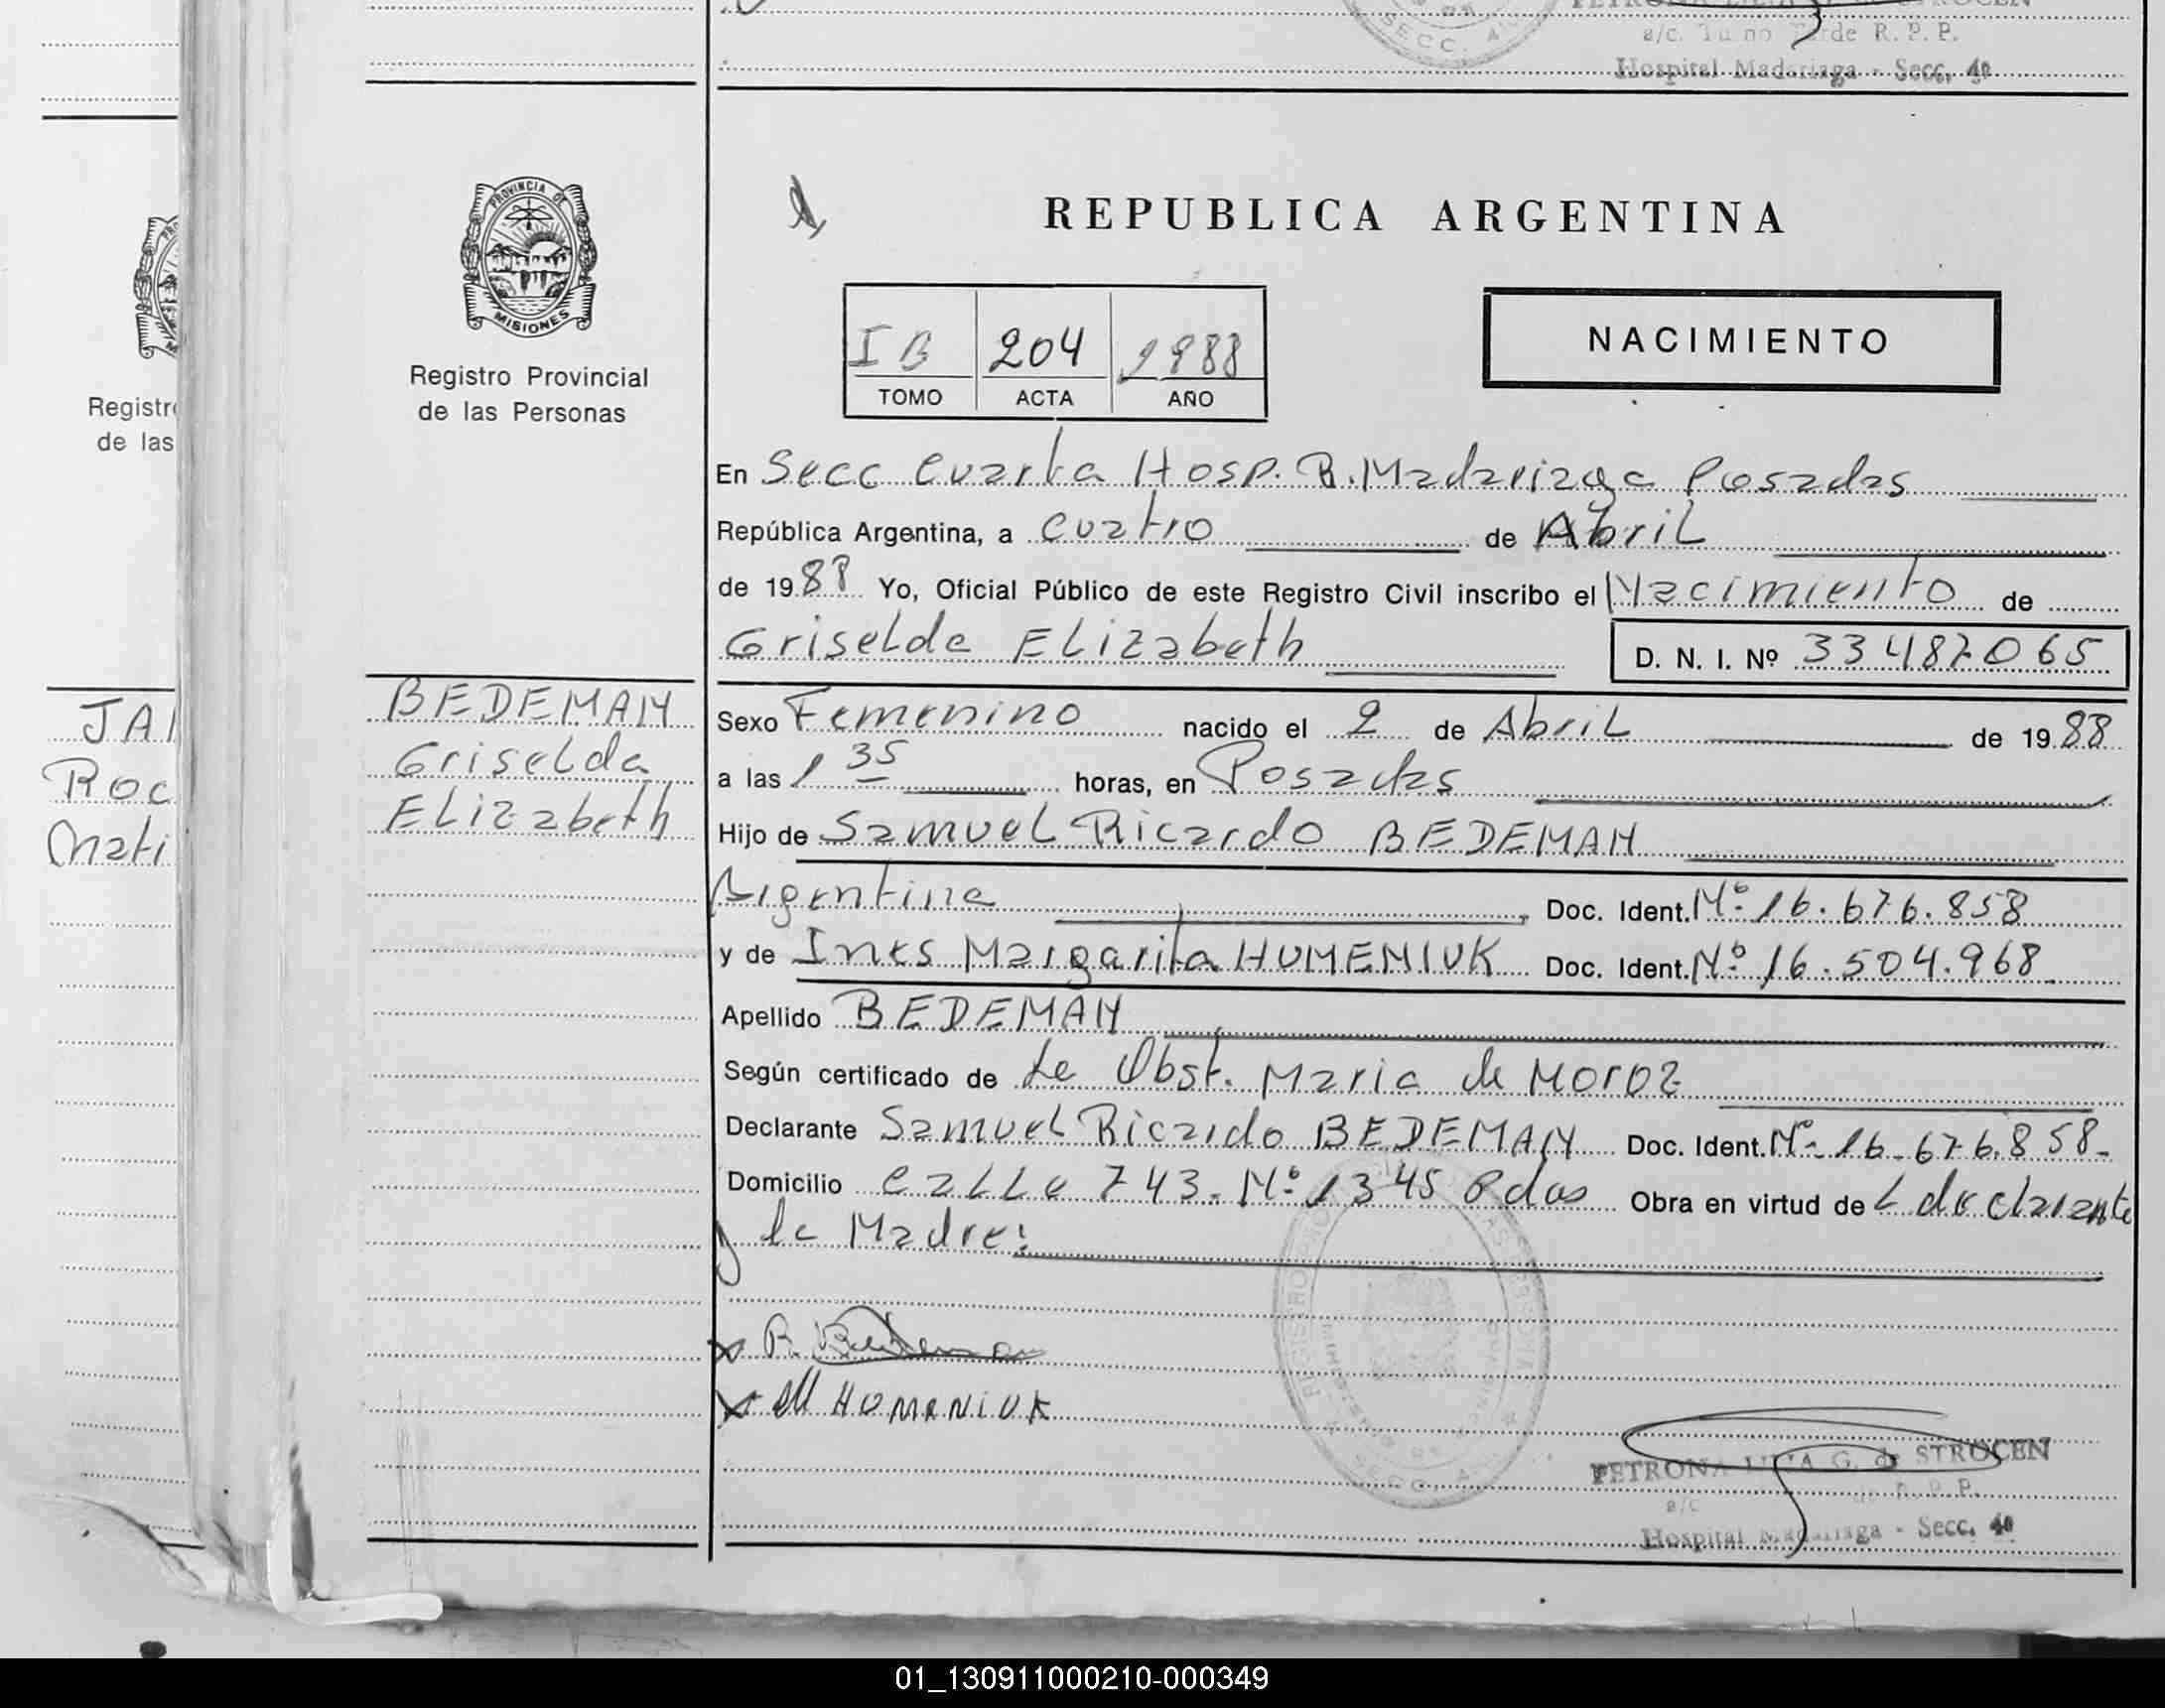 a/c. Tu no Tarde R. P. P.
Hospital Madariaga - Secc. 4ª
SECC. 4
PROVINCIA DE
MISIONES
Registro Provincial
de las Personas
Registr
de las
REPUBLICA ARGENTINA
I B 204 1988
TOMO ACTA AÑO
NACIMIENTO
En Secc Cuarta Hosp. R. Madariaga Posadas
República Argentina, a cuatro de Abril
de 1988 Yo, Oficial Público de este Registro Civil inscribo el Nacimiento de
Griselda Elizabeth
D. N. I. Nº 33487065
JA
Roc
Mati
BEDEMAN
Griselda
Elizabeth
Sexo Femenino nacido el 2 de Abril de 1988
a las 1 35 horas, en Posadas
Hijo de Samuel Ricardo BEDEMAN
Argentina Doc. Ident. Nº 16.676.858
y de Ines Margarita HUMENIUK Doc. Ident. Nº 16.504.968
Apellido BEDEMAN
Según certificado de La Obst. Maria de Moroz
Declarante Samuel Ricardo BEDEMAN Doc. Ident. Nº 16.676.858-
Domicilio Calle 743. Nº 1345 Pdas Obra en virtud de L declarante
y la Madre:
x R. Bedeman
x M HOMENIUK
PETRONA LINA G. de STROCEN
a/c R. P. P.
Hospital Madariaga - Secc. 4ª
01_130911000210-000349